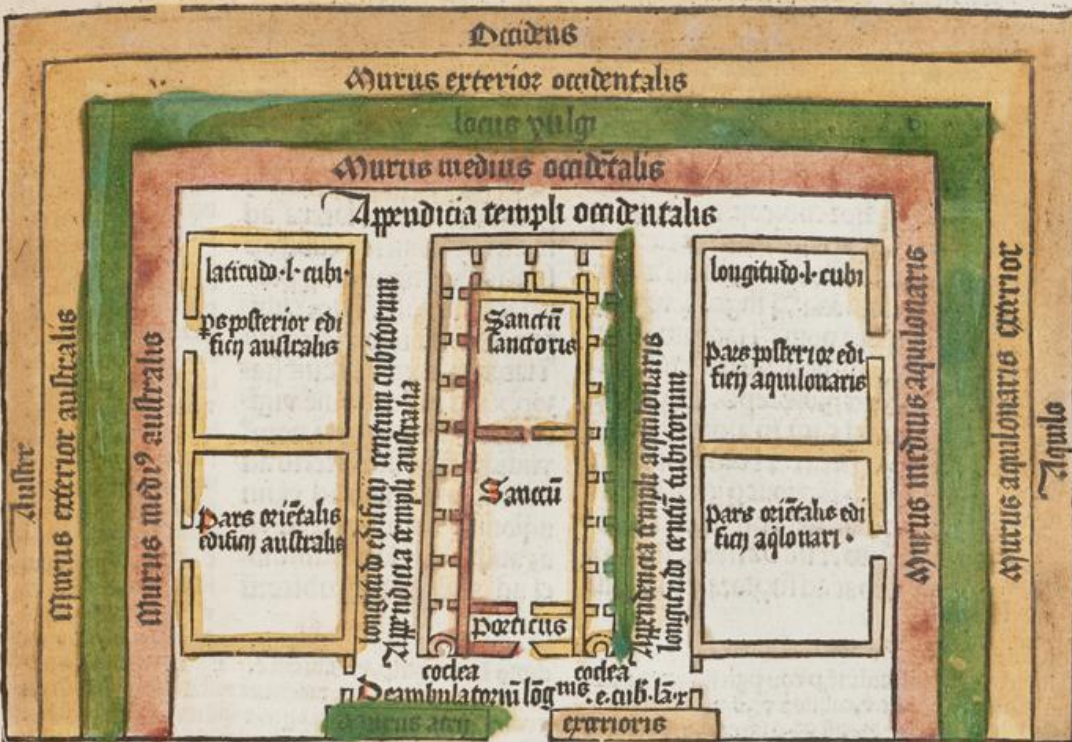 Occidens
Murus exterior occidentalis
locus vulgi
Murus medius occidētalis
Appendicia templi occidentalis
Auster
Murus exterior australis
Murus mediꝰ australis
latitudo·l·cubi·
ps posterior edi
ficij australis
Pars oriētalis
edificij australis
longitudo edificij centum cubitorum
Appendicia templi australia
Sanctū
sanctoris
Sanctū
porticus
coclea
coclea
Appendencia templi aquilonaris
longitudo centū cubitorum
longitudo·l·cubi
Pars posterior edi
ficij aquilonaris
Pars oriētalis edi
ficij aq̄lonari·
Murus medius aquilonaris
Murus aquilonaris exterior
Aquilo
Deambulatoriū lōg
exterioris